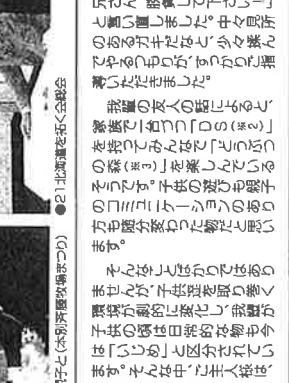 と言い直しました。中々見所
のあるガキだなと、少々揉ん
でやるつもりが、すっかりご指
導いただきました。
我輩の友人の話によると、
家族で一台づつ「DS(※2)」
を持ってみんなで「どうぶつ
の森(※3)」を楽しんでいる
そうです。子供の遊びも親子
のコミュニケーションのあり
方も随分変わった物だと思い
ます。
そんなことばかりではあり
ませんが、子供達を取り巻く
環境が劇的に変化し、我輩が
子供の頃は日常的な物も今
は「いじめ」と区分されてい
ます。そんな中、ご主人様は、
●21北海道を拓く会総会